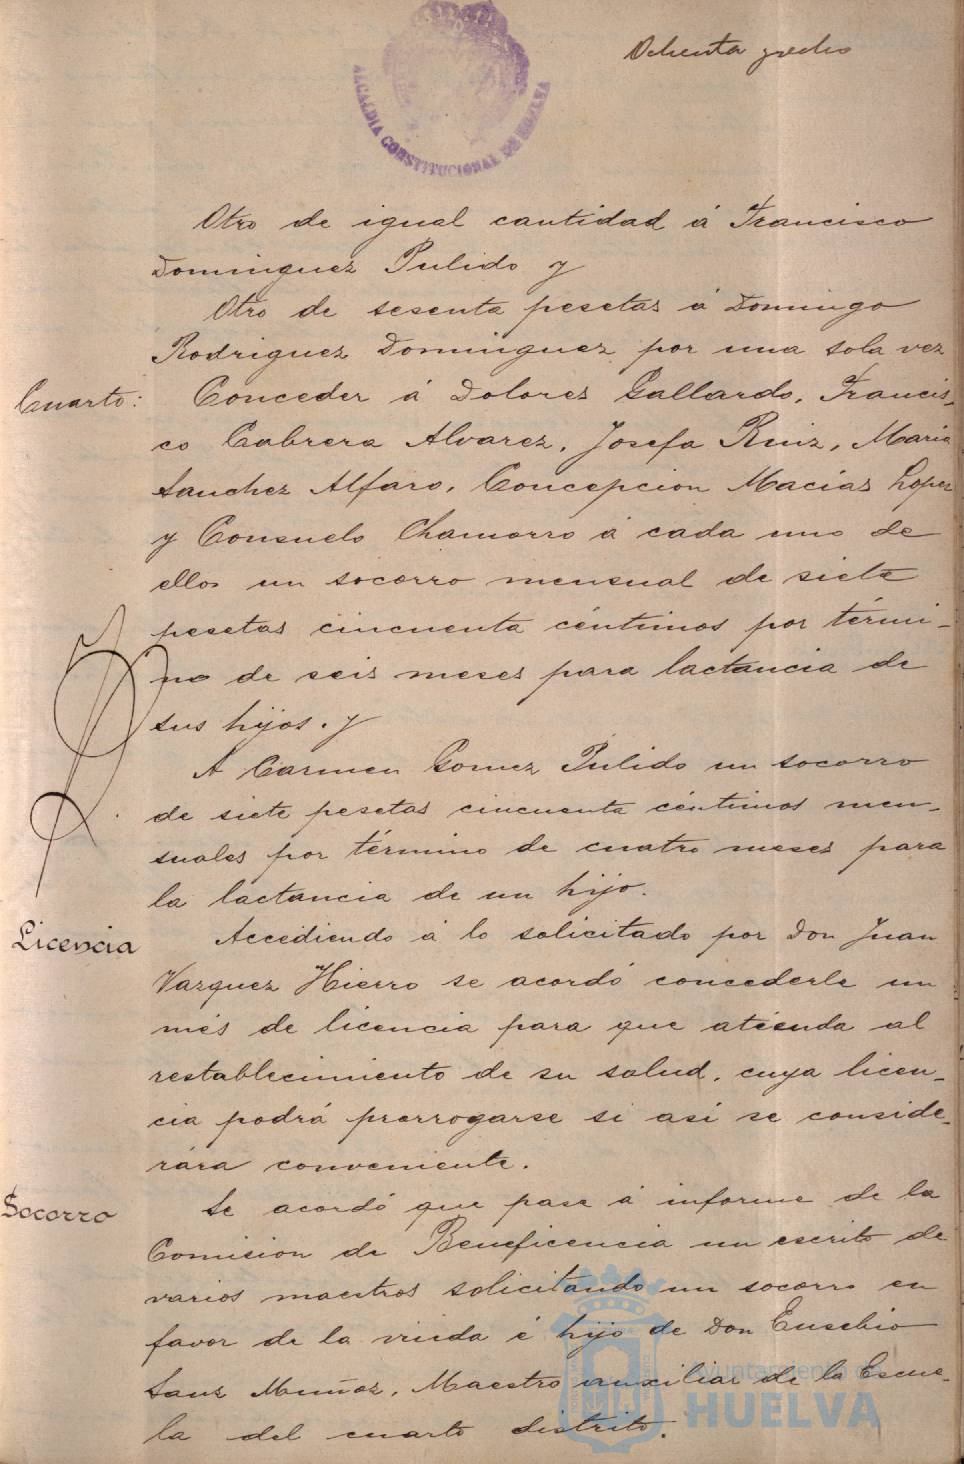 Ochenta y ocho
ALCALDIA CONSTITUCIONAL DE HUELVA
Otro de igual cantidad á Francisco
Dominguez Pulido y
Otro de sesenta pesetas á Domingo
Rodriguez Dominguez por una sola vez
Cuarto: Conceder á Dolores Gallardo, Francis-
co Cabrera Alvarez, Josefa Ruiz, Maria
Sanchez Alfaro, Concepcion Macias Lopez
y Consuelo Chamorro á cada uno de
ellos un socorro mensual de siete
pesetas cincuenta céntimos por térmi-
no de seis meses para lactancia de
sus hijos. y
A Carmen Gomez Pulido un socorro
de siete pesetas cincuenta céntimos men-
suales por término de cuatro meses para
la lactancia de un hijo.
Licencia Accediendo á lo solicitado por Don Juan
Vazquez Hierro se acordó concederle un
més de licencia para que atienda al
restablecimiento de su salud, cuya licen-
cia podrá prorrogarse si así se conside-
rára conveniente.
Socorro Se acordó que pase á informe de la
Comision de Beneficencia un escrito de
varios maestros solicitando un socorro en
favor de la viuda é hijo de Don Eusebio
Sanz Muñoz, Maestro auxiliar de la Escue-
la del cuarto distrito.
Ayuntamiento de
HUELVA